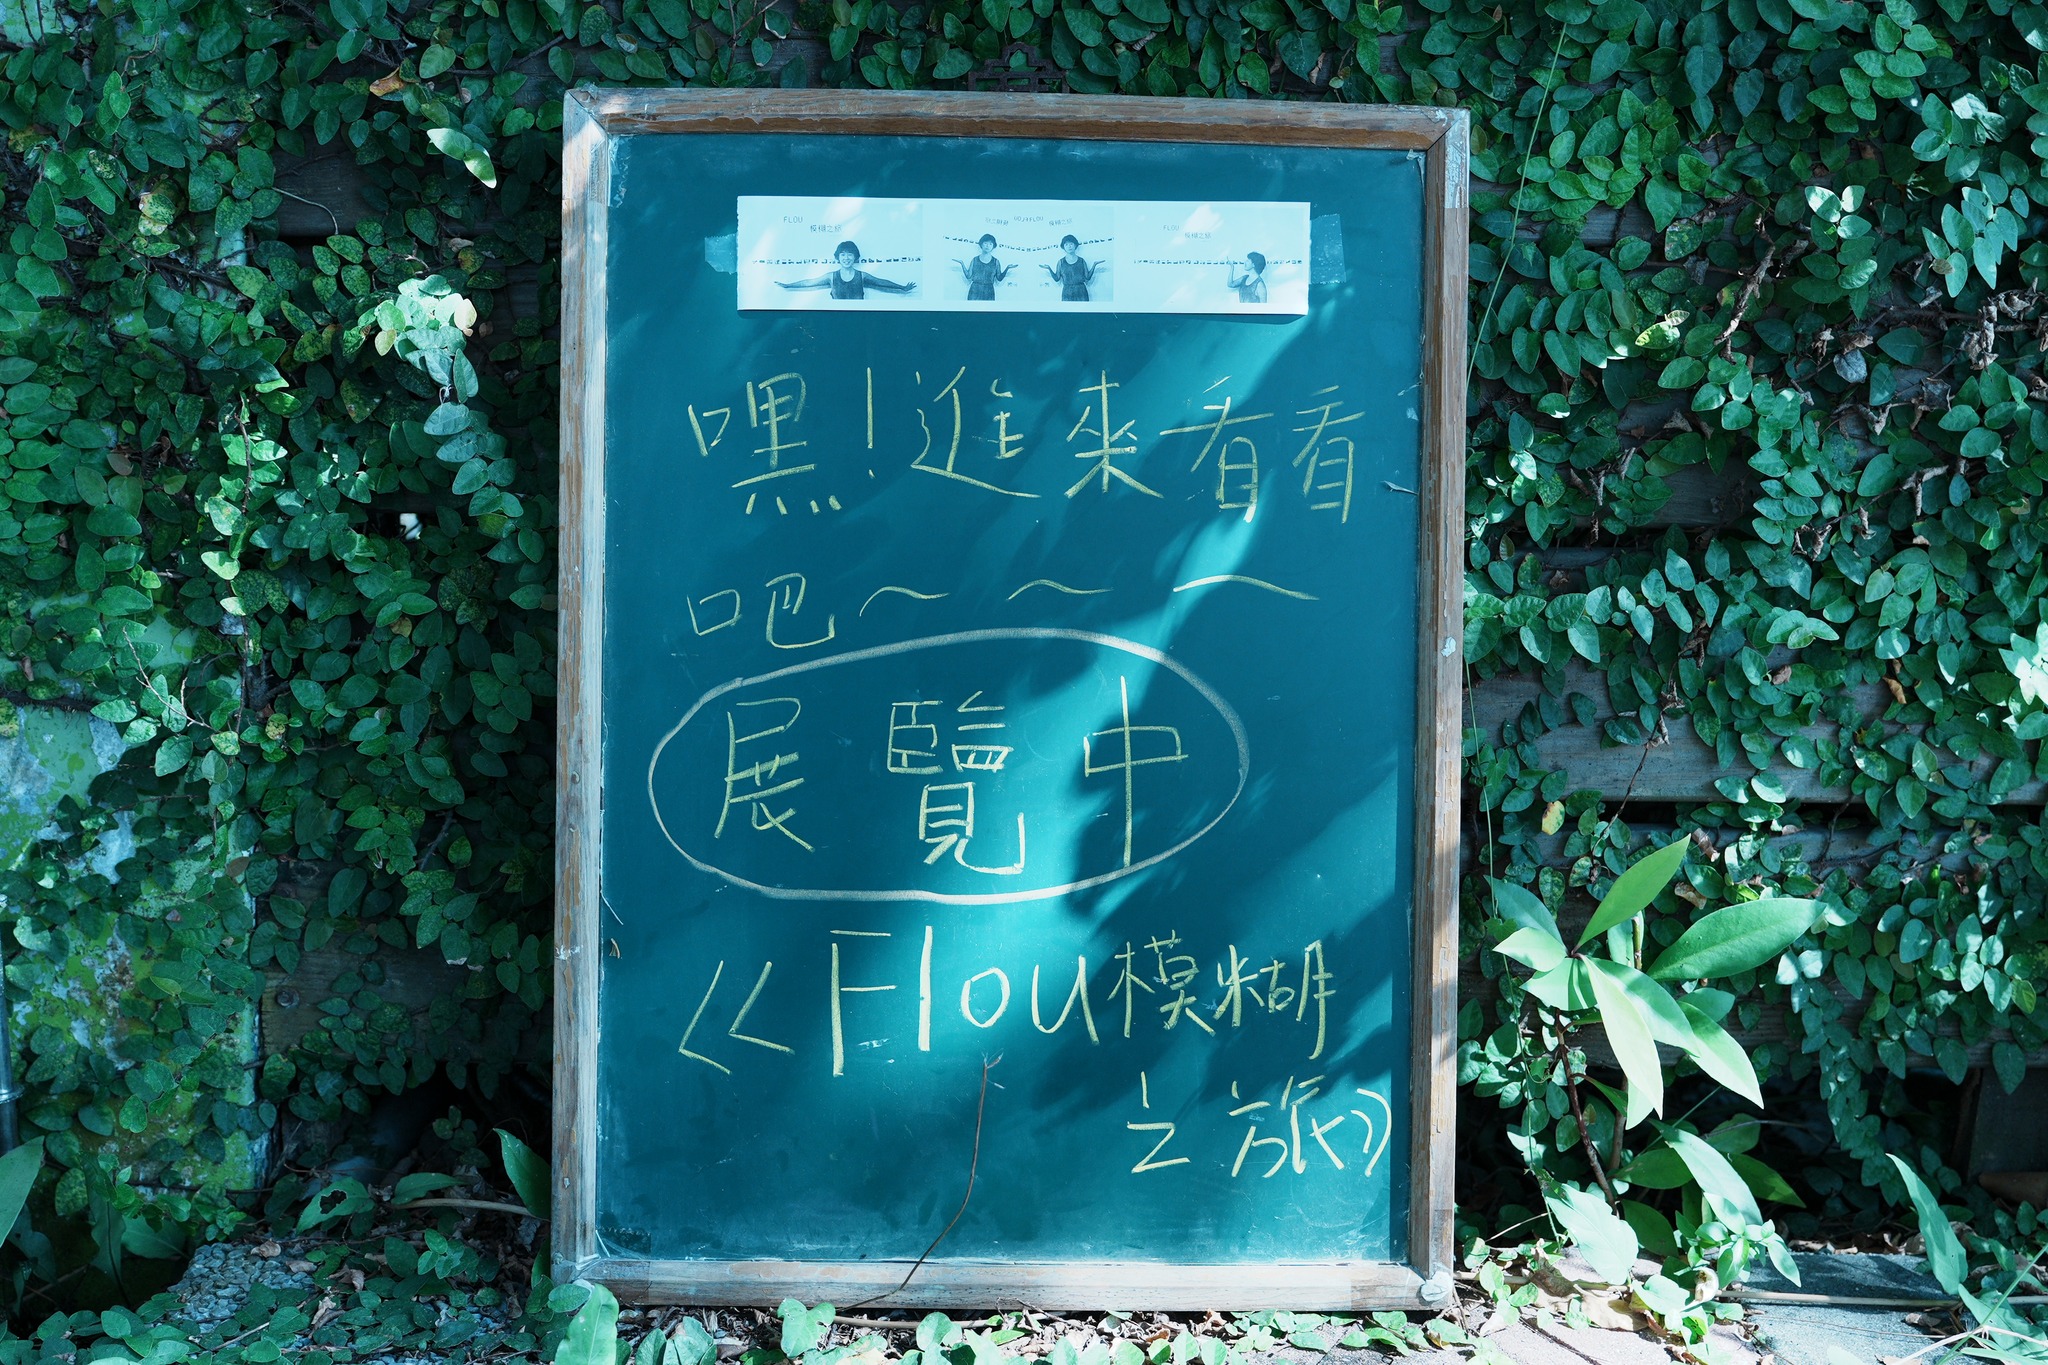 FLOU
模糊之旅
FLOU
模糊之旅
FLOU
模糊之旅
嘿！進來看看
吧～～～
展覽中
《Flou模糊
之旅》